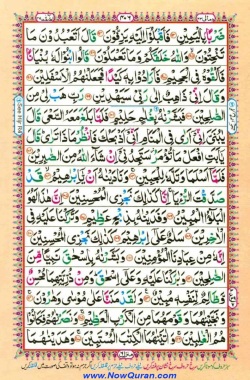 ضَرْبًۢا بِالْيَمِيْنِ فَاَقْبَلُوْۤا اِلَيْهِ يَزِفُّوْنَ قَالَ اَتَعْبُدُوْنَ مَا
تَنْحِتُوْنَ وَاللّٰهُ خَلَقَكُمْ وَمَا تَعْمَلُوْنَ قَالُوا ابْنُوْا لَهٗ بُنْيَانًا
فَاَلْقُوْهُ فِي الْجَحِيْمِ فَاَرَادُوْا بِهٖ كَيْدًا فَجَعَلْنٰهُمُ الْاَسْفَلِيْنَ
وَقَالَ اِنِّيْ ذَاهِبٌ اِلٰى رَبِّيْ سَيَهْدِيْنِ رَبِّ هَبْ لِيْ مِنَ
الصّٰلِحِيْنَ فَبَشَّرْنٰهُ بِغُلٰمٍ حَلِيْمٍ فَلَمَّا بَلَغَ مَعَهُ السَّعْيَ قَالَ
يٰبُنَيَّ اِنِّيْۤ اَرٰى فِي الْمَنَامِ اَنِّيْۤ اَذْبَحُكَ فَانْظُرْ مَاذَا تَرٰى قَالَ
يٰۤاَبَتِ افْعَلْ مَا تُؤْمَرُ سَتَجِدُنِيْۤ اِنْ شَآءَ اللّٰهُ مِنَ الصّٰبِرِيْنَ
فَلَمَّاۤ اَسْلَمَا وَتَلَّهٗ لِلْجَبِيْنِ وَنَادَيْنٰهُ اَنْ يّٰۤاِبْرٰهِيْمُ قَدْ
صَدَّقْتَ الرُّءْيَا اِنَّا كَذٰلِكَ نَجْزِي الْمُحْسِنِيْنَ اِنَّ هٰذَا لَهُوَ
الْبَلٰٓؤُا الْمُبِيْنُ وَفَدَيْنٰهُ بِذِبْحٍ عَظِيْمٍ وَتَرَكْنَا عَلَيْهِ فِي
الْاٰخِرِيْنَ سَلٰمٌ عَلٰۤى اِبْرٰهِيْمَ كَذٰلِكَ نَجْزِي الْمُحْسِنِيْنَ
اِنَّهٗ مِنْ عِبَادِنَا الْمُؤْمِنِيْنَ وَبَشَّرْنٰهُ بِاِسْحٰقَ نَبِيًّا مِّنَ
الصّٰلِحِيْنَ وَبٰرَكْنَا عَلَيْهِ وَعَلٰۤى اِسْحٰقَ وَمِنْ ذُرِّيَّتِهِمَا مُحْسِنٌ
وَّظَالِمٌ لِّنَفْسِهٖ مُبِيْنٌ وَلَقَدْ مَنَنَّا عَلٰى مُوْسٰى وَهٰرُوْنَ
وَنَجَّيْنٰهُمَا وَقَوْمَهُمَا مِنَ الْكَرْبِ الْعَظِيْمِ وَنَصَرْنٰهُمْ فَكَانُوْا
هُمُ الْغٰلِبِيْنَ وَاٰتَيْنٰهُمَا الْكِتٰبَ الْمُسْتَبِيْنَ وَهَدَيْنٰهُمَا
www.NowQuran.com